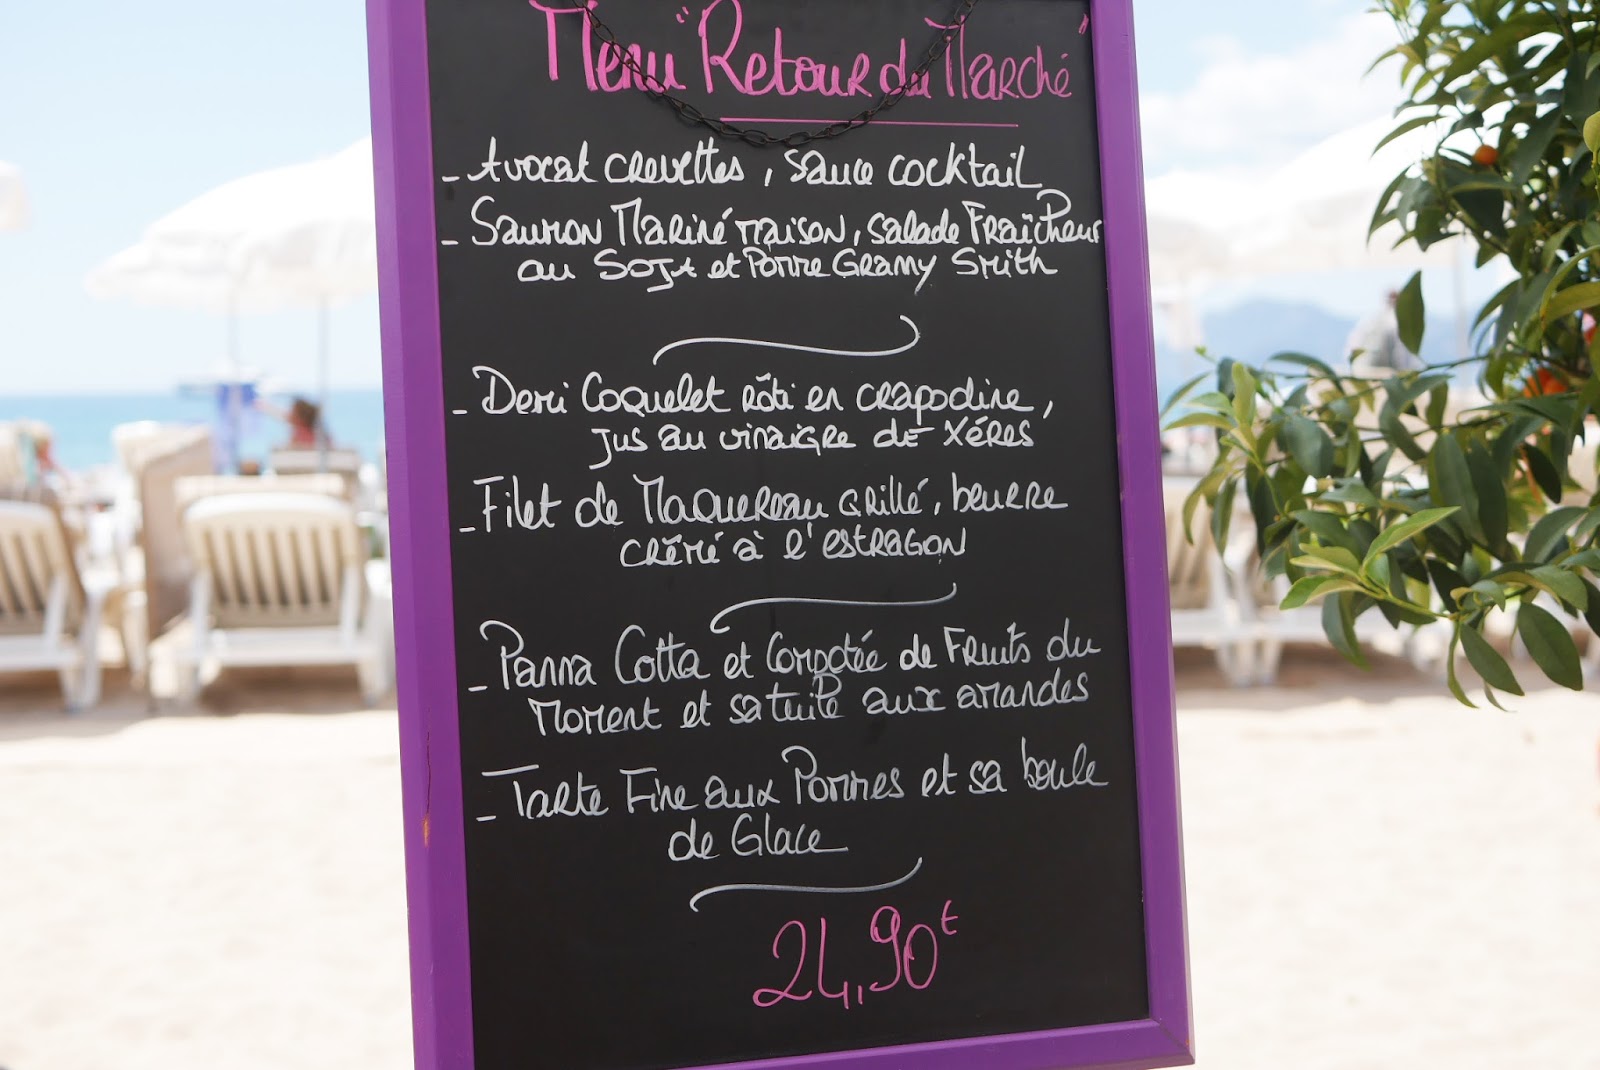 Menu "Retour du Marché"
- Avocat crevettes, sauce cocktail
- Saumon Mariné maison, salade Fraîcheur
au Soja et Pomme Granny Smith
- Demi Coquelet rôti en crapodine,
jus au vinaigre de Xérès
- Filet de Maquereau grillé, beurre
crémé à l'estragon
- Panna Cotta et Compotée de Fruits du
moment et sa tuile aux amandes
- Tarte Fine aux Pommes et sa boule
de Glace
24,90€